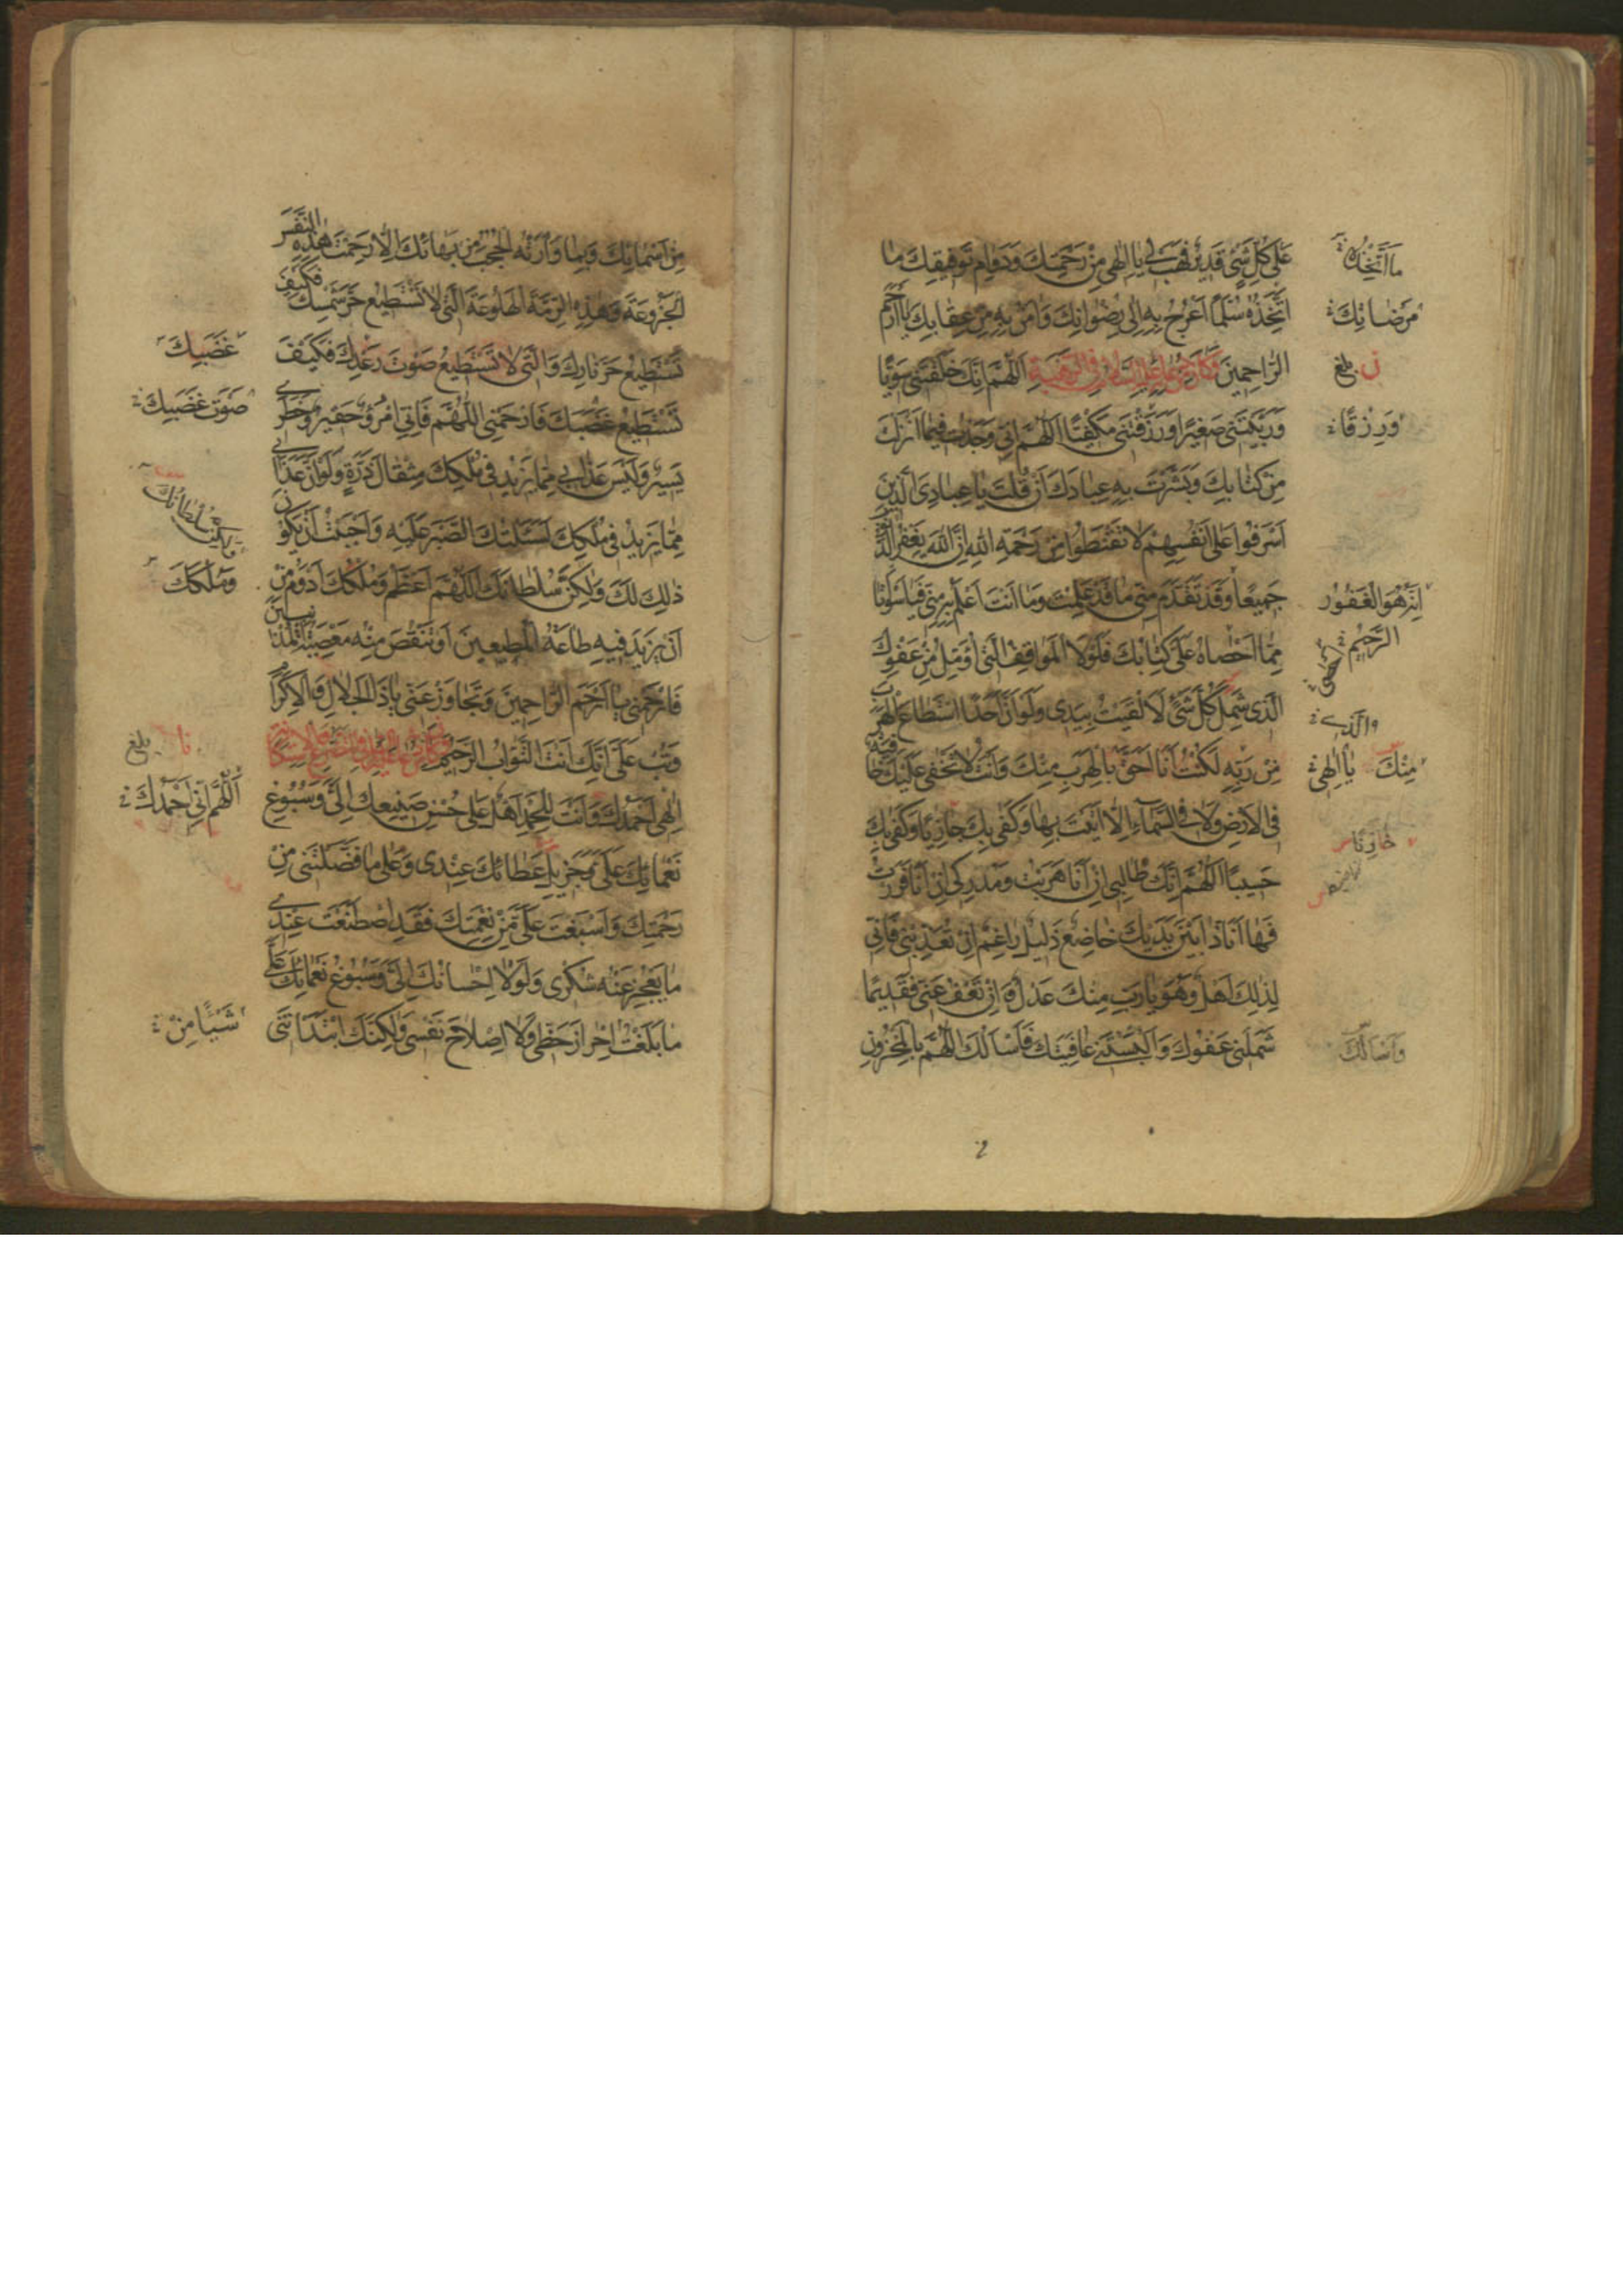 على كل شيء قدير فهب لي يا الهي من رحمتك ودوام توفيقك ما
اتخذه سلما اعرج به الى رضوانك وامن به من عقابك يا ارحم
الراحمين وكان من دعائه عليه السلام في الرهبة اللهم انك خلقتني سويا
وربيتني صغيرا ورزقتني مكفيا اللهم اني وجدت فيما انزلت
من كتابك وبشرت به عبادك ان قلت يا عبادي الذين
اسرفوا على انفسهم لا تقنطوا من رحمة الله ان الله يغفر الذنوب
جميعا وقد تقدم مني ما قد علمت وما انت اعلم به مني فيا سوأتا
مما احصاه على كتابك فلولا المواقف التي اؤمل من عفوك
الذي شمل كل شيء لالقيت بيدي ولو ان احدا استطاع الهرب
من ربه لكنت انا احق بالهرب منك وانت لا تخفى عليك خافية
في الارض ولا في السماء الا اتيت بها وكفى بك جازيا وكفى بك
حسيبا اللهم انك طالبي ان انا هربت ومدركي ان انا فررت
فها انا ذا بين يديك خاضع ذليل راغم ان تعذبني فاني
لذلك اهل وهو يا رب منك عدل وان تعف عني فقديما
شملني عفوك والبستني عافيتك فاسألك اللهم بالمخزون
ما اتخذه
مرضاتك
بلغ
ورزقا
انه هو الغفور
الرحيم
والذي
منك يا الهي
جازيا
واسألك
من اسمائك وبما وارته الحجب من بهائك الا رحمت هذه النفس
الجزوعة وهذه الرمة الهلوعة التي لا تستطيع حر شمسك فكيف
تستطيع حر نارك والتي لا تستطيع صوت رعدك فكيف
تستطيع غضبك فارحمني اللهم فاني امرؤ حقير وخطري
يسير وليس عذابي مما يزيد في ملكك مثقال ذرة ولو ان عذابي
مما يزيد في ملكك لسألتك الصبر عليه واحببت ان يكون
ذلك لك ولكن سلطانك اللهم اعظم وملكك ادوم من
ان يزيد فيه طاعة المطيعين او تنقص منه معصية المذنبين
فارحمني يا ارحم الراحمين وتجاوز عني يا ذا الجلال والاكرام
وتب علي انك انت التواب الرحيم وكان من دعائه عليه السلام في التضرع والاستكانة
الهي احمدك وانت للحمد اهل على حسن صنيعك الي وسبوغ
نعمائك علي وجزيل عطائك عندي وعلى ما فضلتني من
رحمتك واسبغت علي من نعمتك فقد اصطنعت عندي
ما يعجز عنه شكري ولولا احسانك الي وسبوغ نعمائك علي
ما بلغت احراز حظي ولا اصلاح نفسي ولكنك ابتدأتني
غضبك
صوت غضبك
ولكن سلطانك
وملكك
بلغ
اللهم اني احمدك
شيئا من